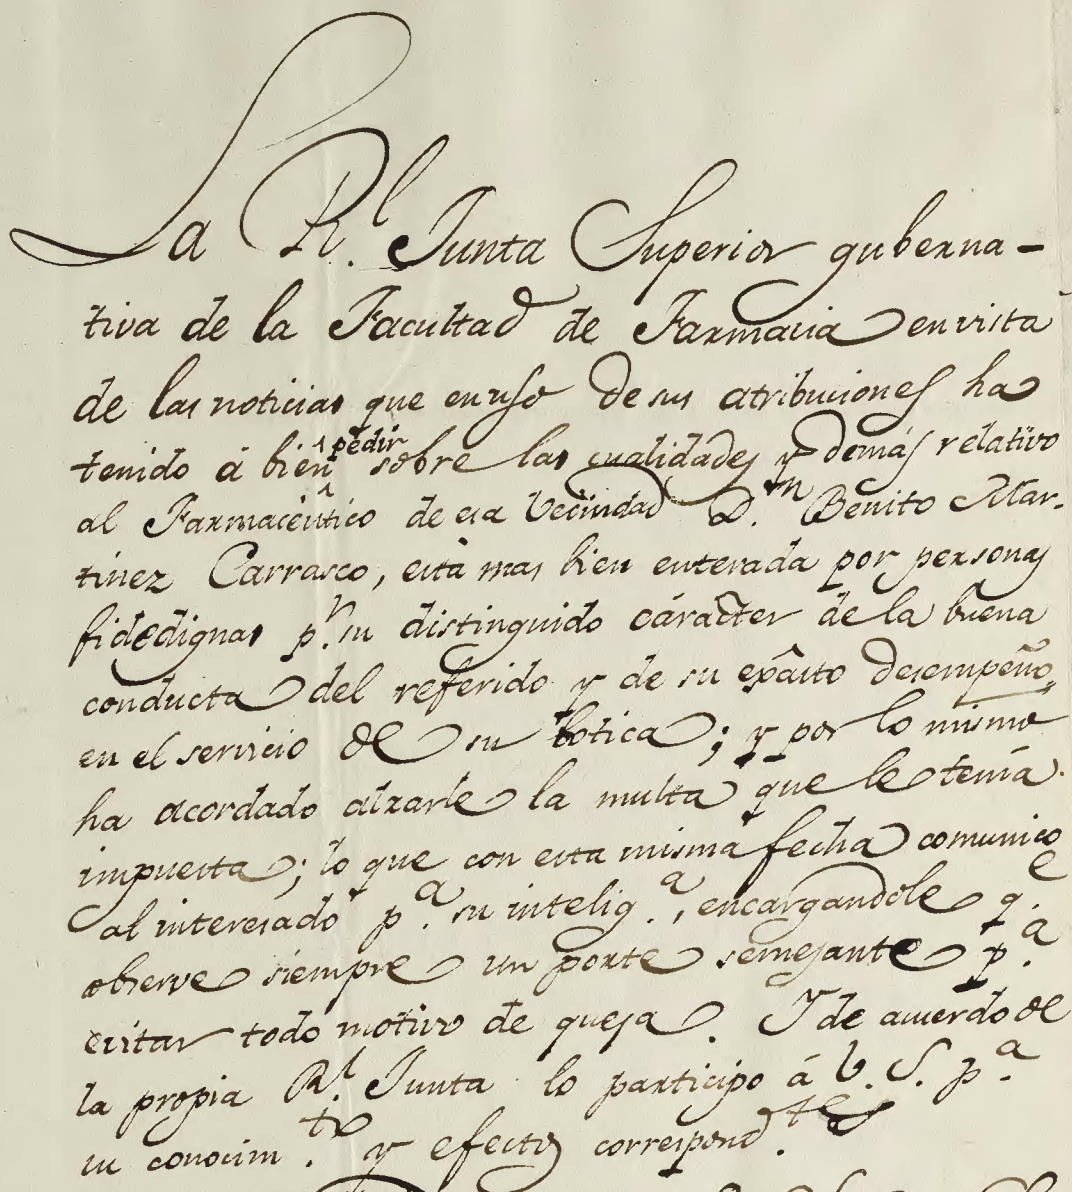 La R.l Junta Superior guberna-
tiva de la Facultad de Farmacia en vista
de las noticias que en uso de sus atribuciones ha
tenido á bien pedir sobre las cualidades y demás relativo
al Farmacéutico de esa Vecindad D.n Benito Mar-
tinez Carrasco, está mas bien enterada por personas
fidedignas p.r su distinguido carácter de la buena
conducta del referido y de su exácto desempeño,
en el servicio de su botica; y por lo mismo
ha acordado alzarle la multa que le tenia
impuesta; lo que con esta misma fecha comunico
al interesado p.a su intelig.a, encargandole q.e
observe siempre un porte semejante p.a
evitar todo motivo de queja. Y de acuerdo de
la propia R.l Junta lo participo á V. S. p.a
su conocim.to y efectos correspond.tes